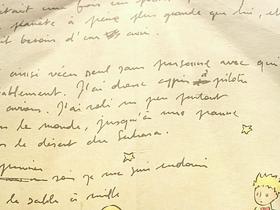 était une fois un
planète à peine plus grande que lui, et
ait besoin d'un ami
ainsi vécu seul sans personne avec qui
ablement. J'ai donc appris à piloter
avions. J'ai volé un peu partout
le monde, jusqu'à une panne
le désert du Sahara.
premier soir je me suis endormi
le sable à mille